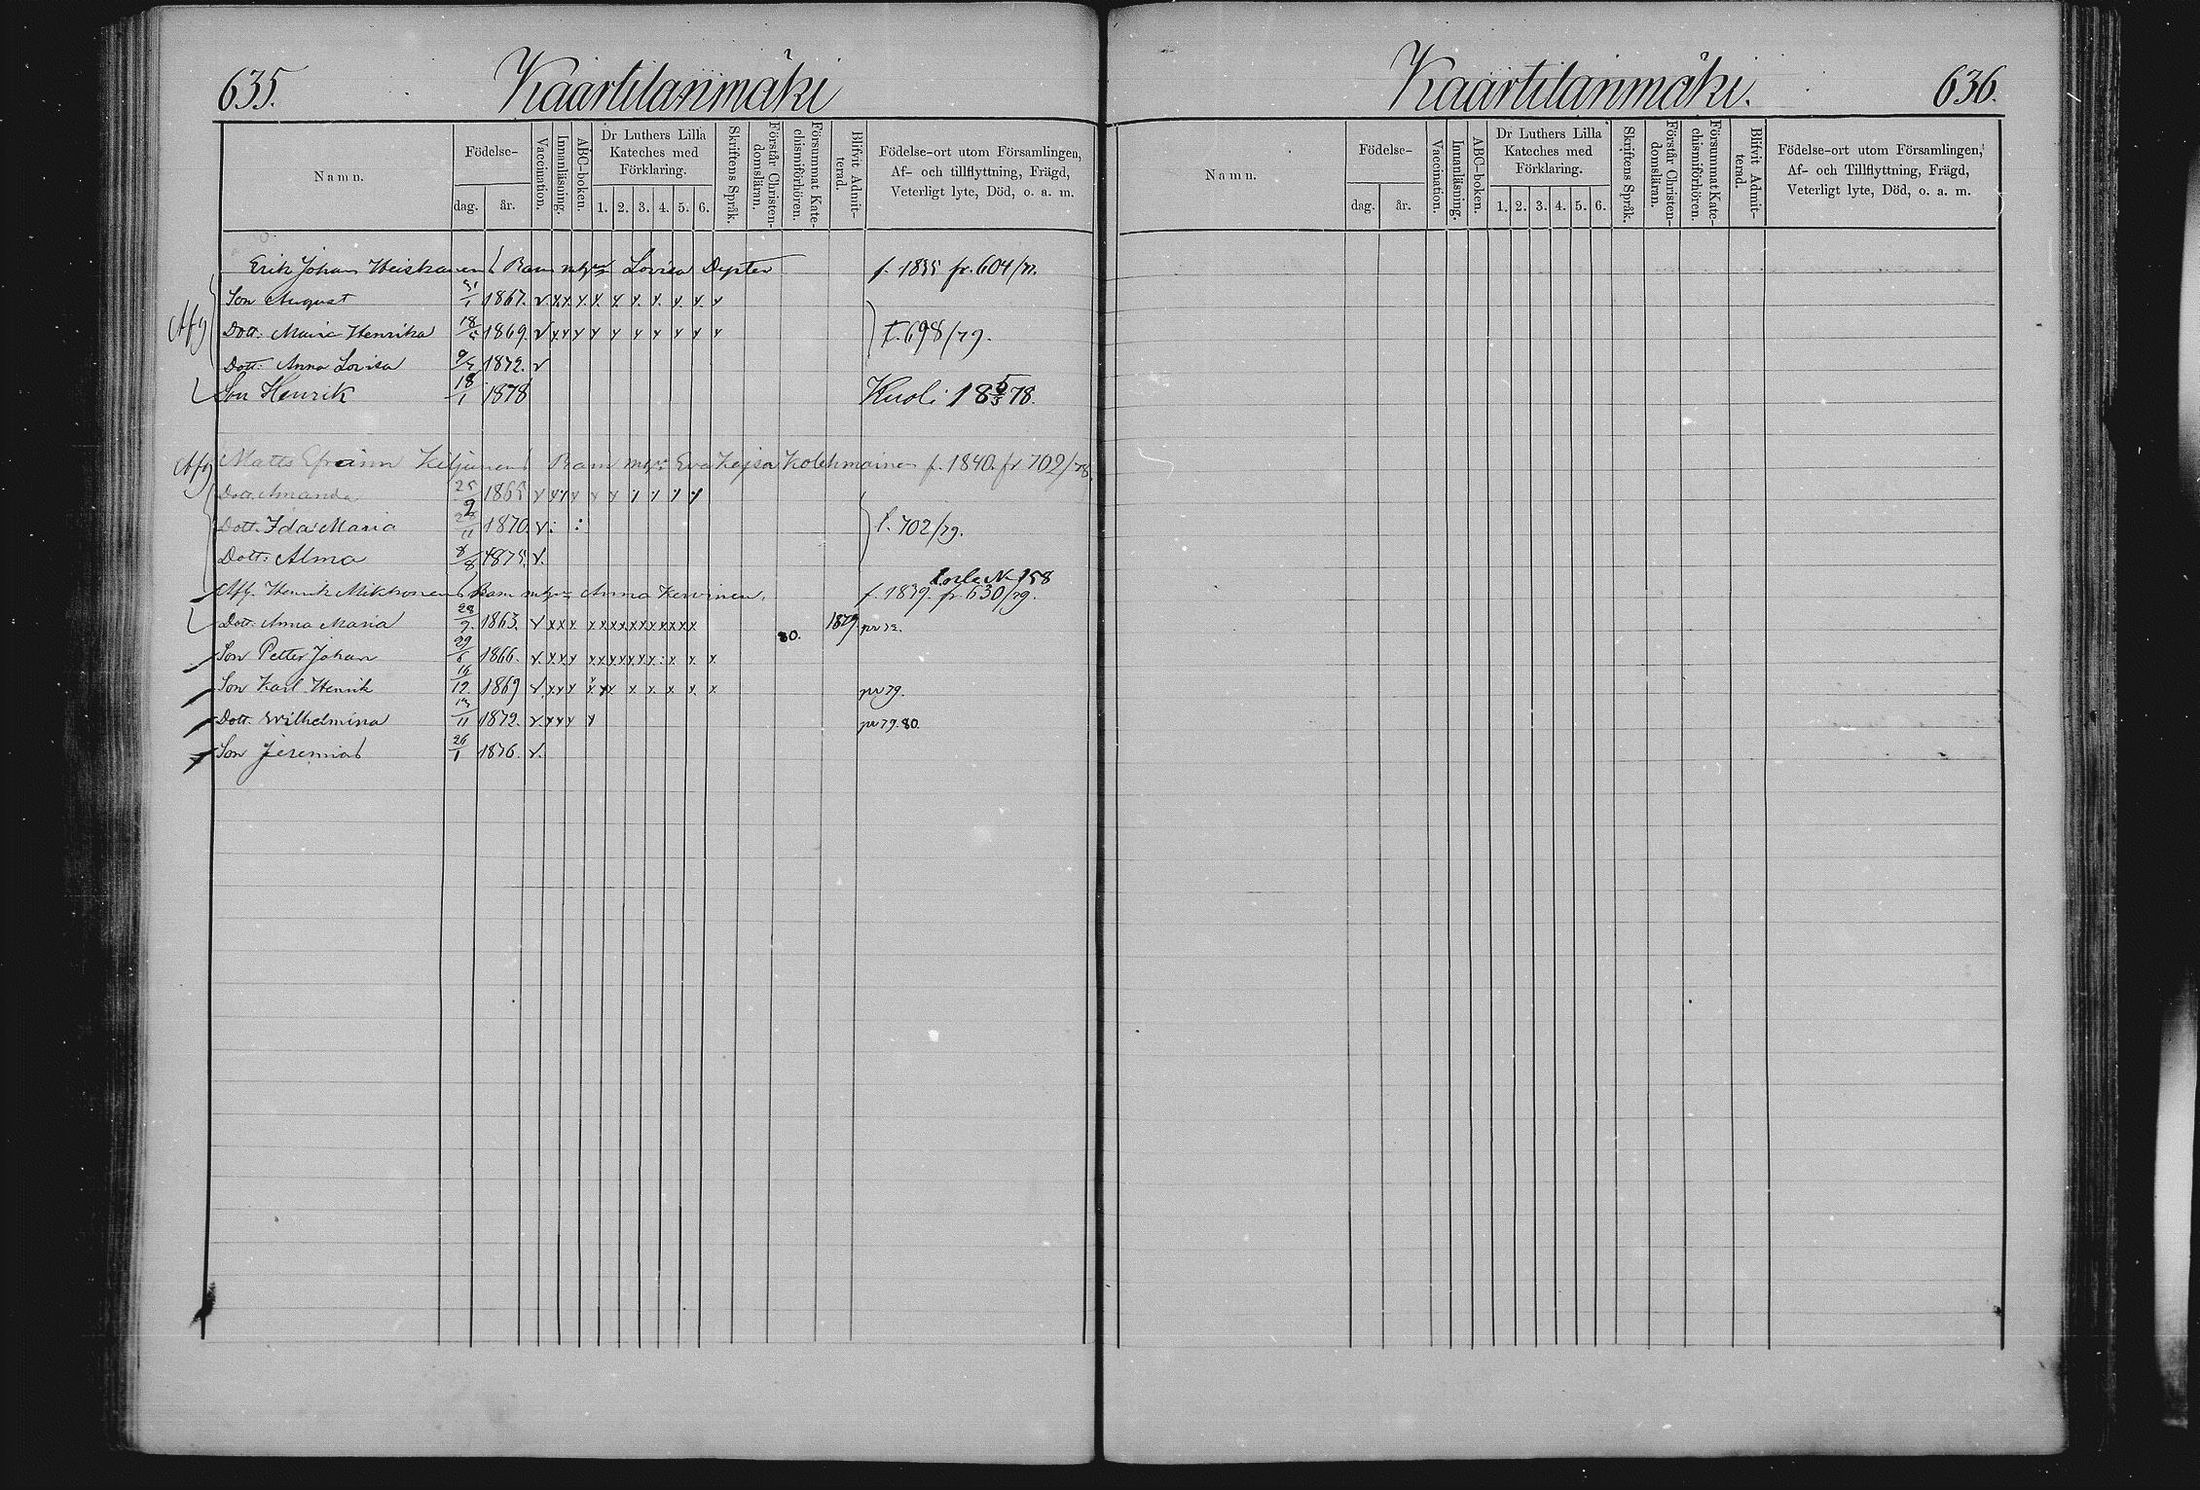 635. Kaartilanmäki
Namn. Födelse- dag. år. Vaccination. Innanläsning. ABC-boken. Dr Luthers Lilla Kateches med Förklaring. 1. 2. 3. 4. 5. 6. Skriftens Språk. Förstår Christendomsläran. Försummat Katechismiförhören. Blifvit Admitterad. Födelse-ort utom Församlingen, Af- och tillflyttning, Frägd, Veterligt lyte, Död, o. a. m.
Erik Johan Heiskanens Barn m. Lovisa f. 1835 fr. 604/77.
Afg Son August 31/1 1867. v x x x x x x x x x x
Dott. Maria Henrika 18/5 1869. v x x x x x x x x x x t. 698/79.
Dott. Anna Lovisa 9/5 1872. v
Son Henrik 18/1 1878 Kuoli 18 5/3 78.
Afg Matts Efraim Kiljunens Barn m. Eva Kajsa Kolehmainen f. 1840. fr 702/78.
Dott. Amanda 25/9 1865 v x x x x x x x x x
Dott. Ida Maria 23/11 1870. v : : t. 702/79.
Dott. Alma 8/8 1875. v.
Henrik Mikkonens Barn m. Anna f. 1839. fr. 630/79. N 158
Dott. Anna Maria 28/9 1863. v x x x x x x x x x x x x x 80. 1879.
Son Petter Johan 29/6 1866. v. x x x x x x x x x x : x x x
Son Karl Henrik 16/12 1869 v x x x x x x x x x x x pr 79.
Dott. Wilhelmina 13/11 1872. v. x x x x pr 79. 80.
Son Jeremias 26/1 1876. v.
Kaartilanmäki. 636.
Namn. Födelse- dag. år. Vaccination. Innanläsning. ABC-boken. Dr Luthers Lilla Kateches med Förklaring. 1. 2. 3. 4. 5. 6. Skriftens Språk. Förstår Christendomsläran. Försummat Katechismiförhören. Blifvit Admitterad. Födelse-ort utom Församlingen, Af- och Tillflyttning, Frägd, Veterligt lyte, Död, o. a. m.